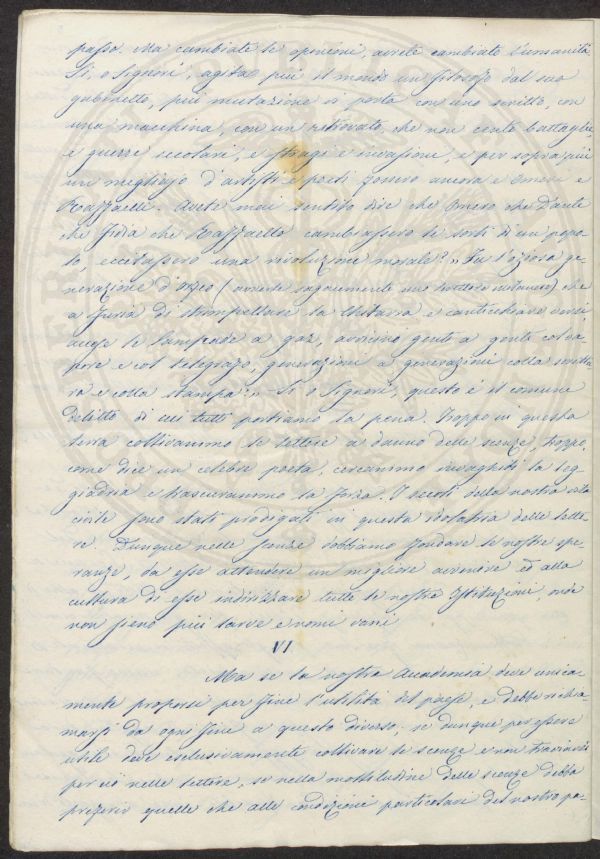 passo. Ma cambiate le opinioni, avrete cambiato l'umanità
Sì, o Signori, agita più il mondo un filosofo dal suo
gabinetto, più mutazione ei porta con uno scritto, con
una macchina, con un ritrovato, che non cento battaglie
e guerre secolari, e stragi e invasione, e per sopra più
un migliajo d'artisti e poeti fossero ancora e Omeri e
Raffaelli. Avete mai sentito dire che Omero che Dante
che Fidia che Raffaello cambiassero le sorti di un popo-
lo eccitassero una rivoluzione morale? » Fu l'oziosa ge-
nerazione d'Orfeo (avverte sagacemente uno scrittore) che
a furia di strimpellare la chitarra e canticchiare versi
accese le lampade a gaz, avvicinò gente a gente col va-
pore e col telegrafo, generazioni a generazioni colla scrittu-
ra e colla stampa? » Sì o Signori, questo è il comune
delitto di cui tutti portiamo la pena. Troppo in questa
terra coltivammo le lettere a danno delle scienze, troppo,
come dice un celebre poeta, cercammo invaghiti la leg-
giadria e trascurammo la forza. I secoli della nostra vita
civile sono stati prodigati in questa idolatria delle lette-
re. Dunque nelle scienze dobbiamo fondare le nostre spe-
ranze, da esse attendere un migliore avvenire ed alla
cultura di esse indirizzare tutte le nostre Istituzioni, onde
non sieno più larve e nomi vani
VI
Ma se la nostra Accademia deve unica-
mente proporsi per fine l'utilità del paese, e debbe richia-
marsi da ogni fine a questo diverso; se dunque per essere
utile deve esclusivamente coltivare le scienze e non traviarsi
per ciò nelle lettere, se nella moltitudine delle scienze debba
preferir quelle che alle condizioni particolari del nostro pa-